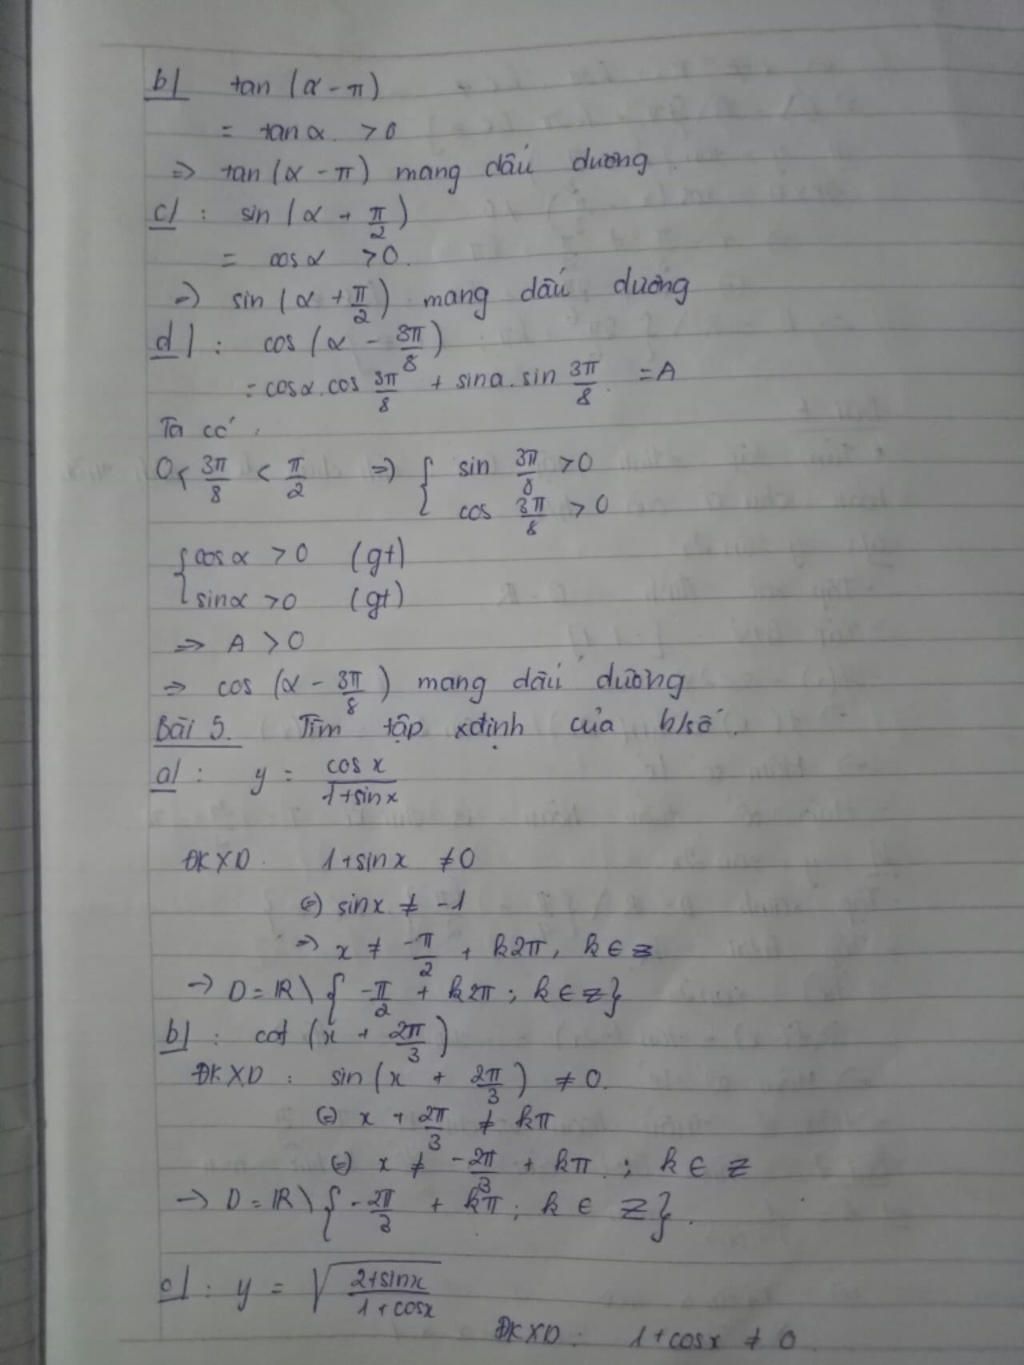 b/ tan (α - π)
= tan α > 0
=> tan (α - π) mang dấu dương
c/ : sin (α + π/2)
= cos α > 0.
=> sin (α + π/2) mang dấu dương
d/ : cos (α - 3π/8)
= cos α . cos 3π/8 + sin a . sin 3π/8 = A
Ta có :
0 < 3π/8 < π/2 => { sin 3π/8 > 0
cos 3π/8 > 0
{ cos α > 0 (gt)
sin α > 0 (gt)
=> A > 0
=> cos (α - 3π/8) mang dấu dương
Bài 5. Tìm tập xđịnh của h/số.
a/ : y = cos x / 1 + sin x
ĐKXD. 1 + sin x ≠ 0
(=) sin x ≠ -1
=> x ≠ -π/2 + k2π, k ∈ Z
-> D = R \ { -π/2 + k2π ; k ∈ Z }
b/ : cot (x + 2π/3)
ĐKXD : sin (x + 2π/3) ≠ 0.
(=) x + 2π/3 ≠ kπ
(=) x ≠ -2π/3 + kπ ; k ∈ Z
-> D = R \ { -2π/3 + kπ ; k ∈ Z }.
c/ : y = √(2 + sin x / 1 + cos x)
ĐKXD : 1 + cos x ≠ 0